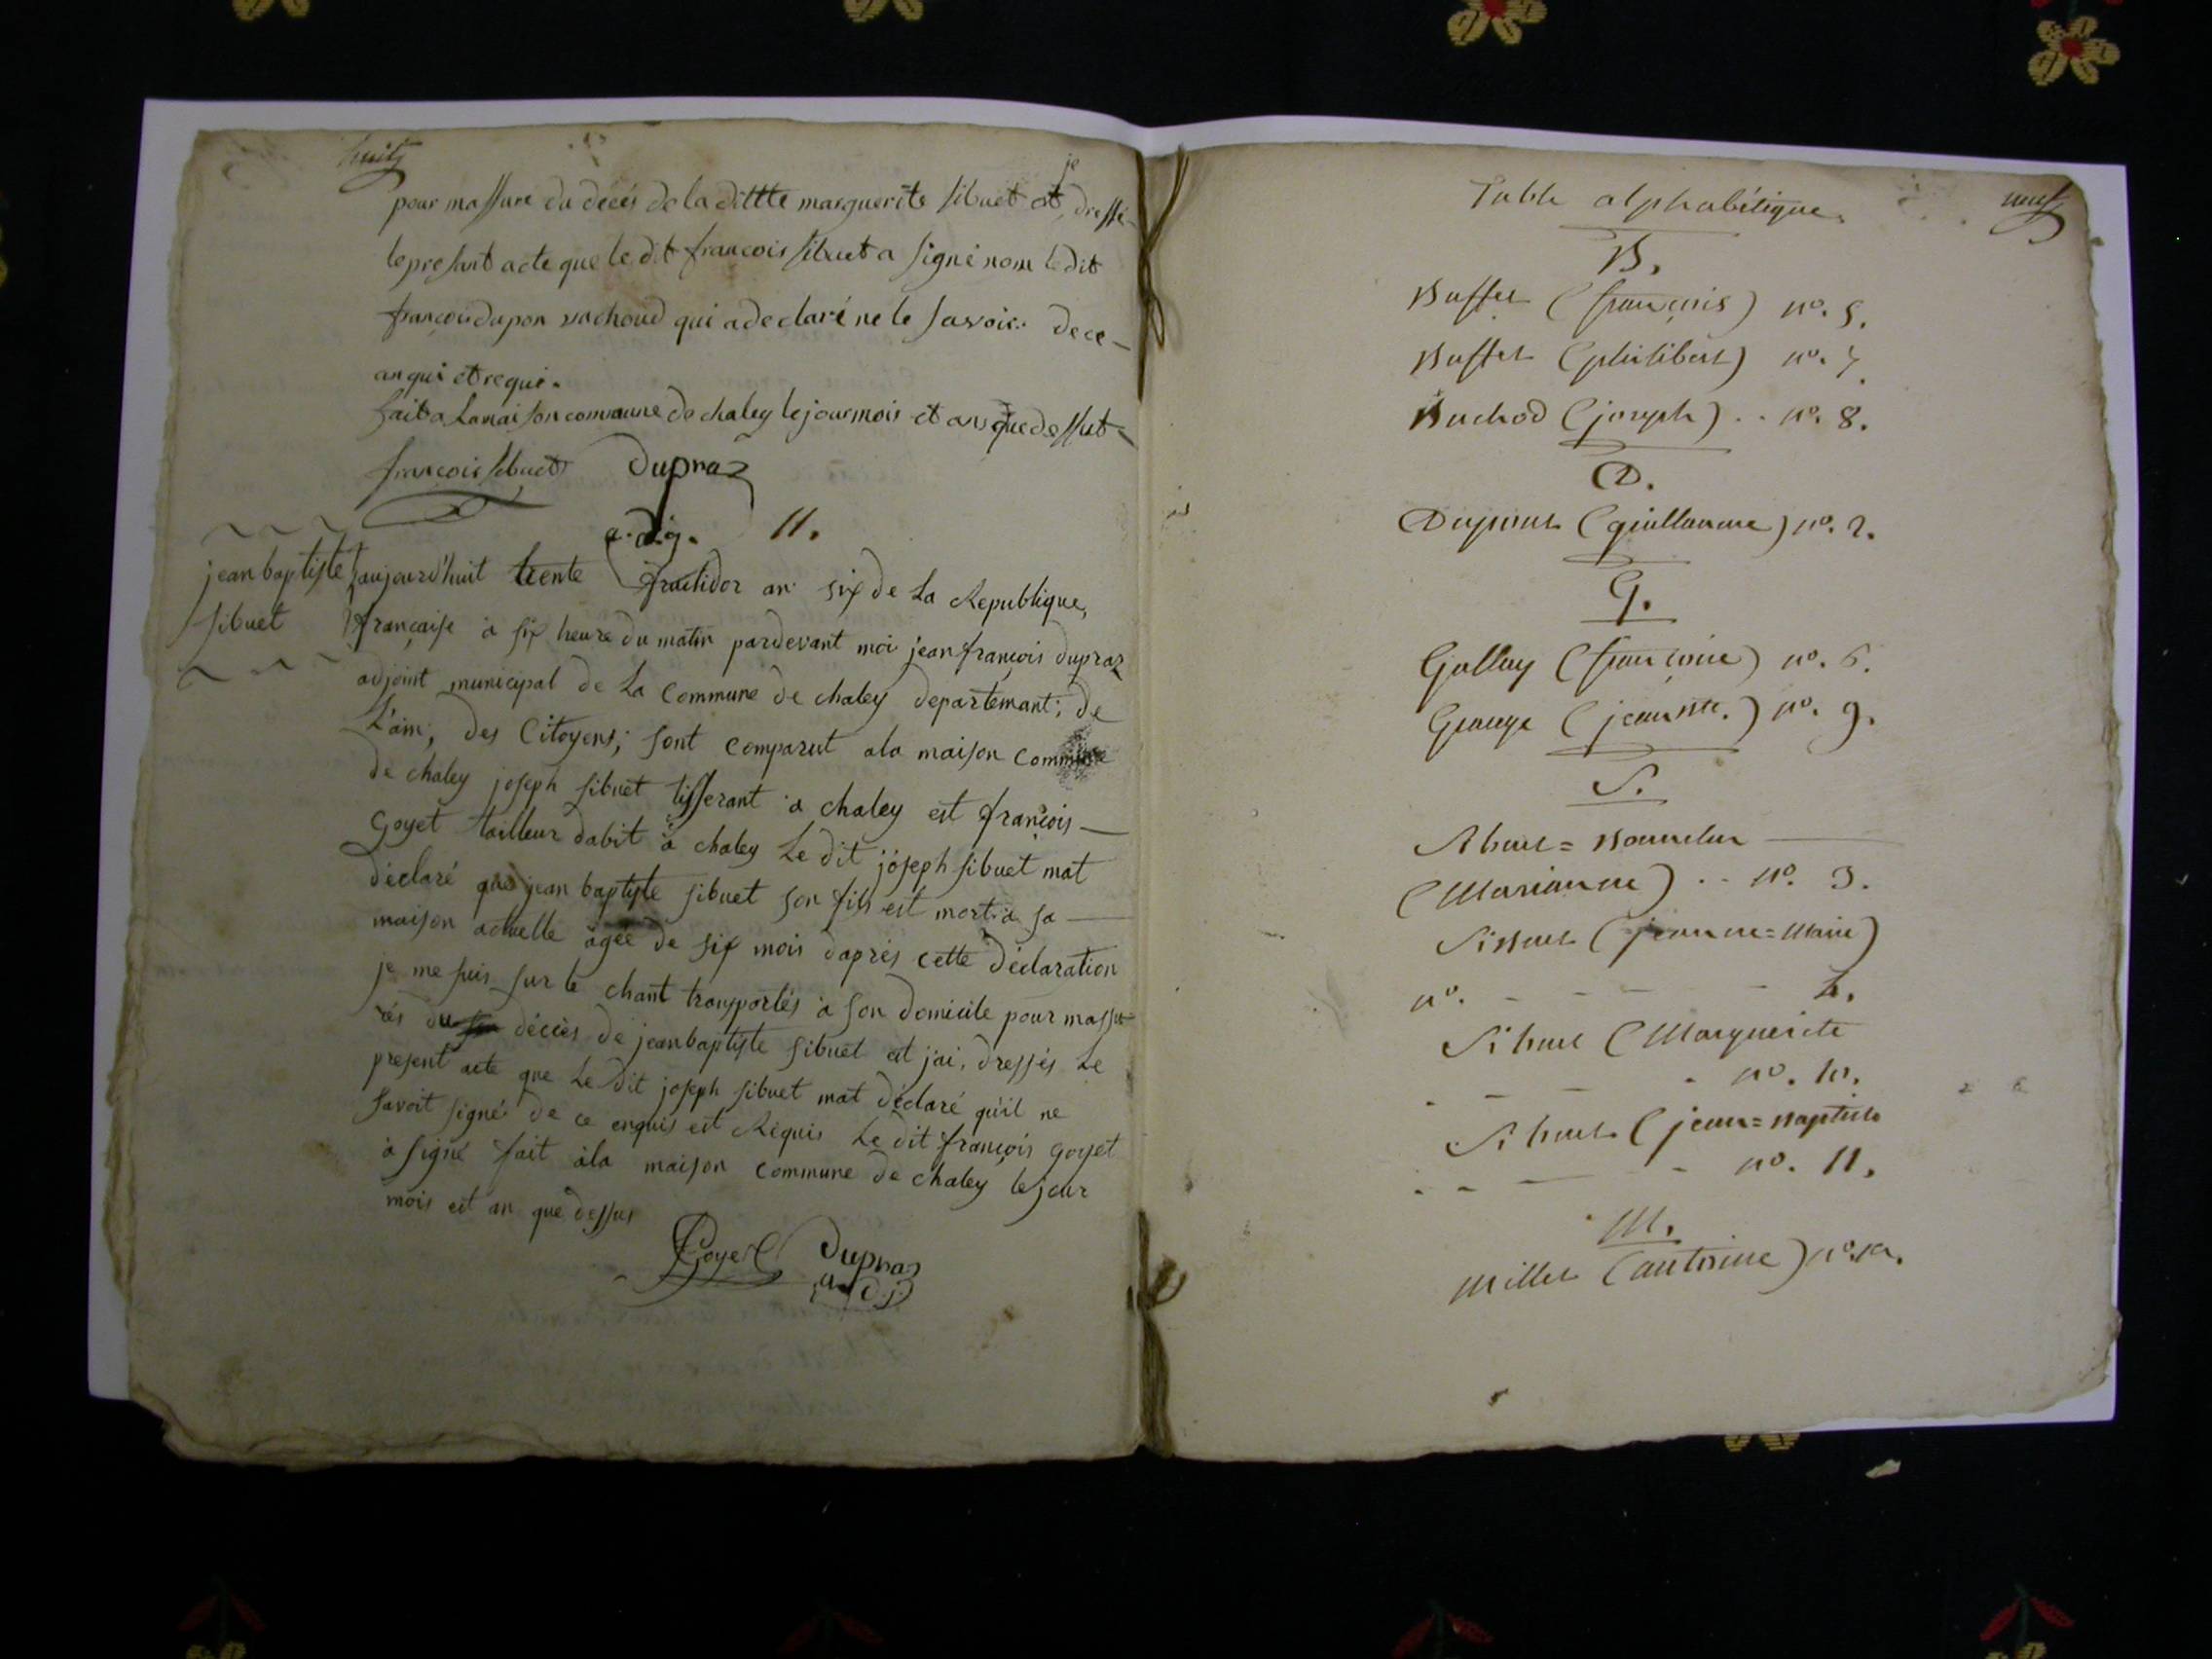 huit
je
pour massure du decés de la dittte marguerite sibuet et dressé
le presant acte que le dit francois sibuet a signé nom le dit
françoi dupon vachoud qui a declaré ne le savoir. de ce –
anqui et requi.
fait a lamaison comaune de chaley le jour mois et an que dessut
françois sibuet Dupraz
a.dj. 11.
jean baptiste
sibuet
aujourd'huit trente fructidor an six de la Republique,
française à six heure du matin pardevant moi jean françois dupraz
adjoint municipal de La Commune de chaley departemant; de
L'ain; des Citoyens; sont comparut ala maison commune
de chaley joseph sibuet tisserant a chaley est françois —
Goyet tailleur dabit à chaley Le dit joseph sibuet mat
déclaré que jean baptiste sibuet son fils est mort à sa —
maison actuelle âgée de six mois daprés cette déclaration
je me suis sur le chant transportés à son domicile pour massu
rés du déccès de jean baptiste sibuet et jai, dressés Le
present acte que Le dit joseph sibuet mat déclaré qu'il ne
savoit signé de ce enquis est Réquis Le dit françois goyet
à signé fait àla maison commune de chaley le jour
mois est an que dessus
Goyet Dupraz
adj
neuf
Table alphabétique.
B.
Buffet (françois) no. 5.
Buffet (philibert) no. 7.
Buchod (joseph) .. no. 8.
D.
Dupont (guillaume) no. 2.
G.
Gallay (françoise) no. 6.
Grange (jean Bte.) no. 9.
S.
Sibuet = Bonnelur
(Marianne) .. no. 3.
Sibuet (jeanne = Marie)
no. - - - - 4.
Sibuet (Marguerite
- - - - no. 10.
Sibuet (jean = Baptiste
- - - - no. 11.
M.
Millet (antoine) no.